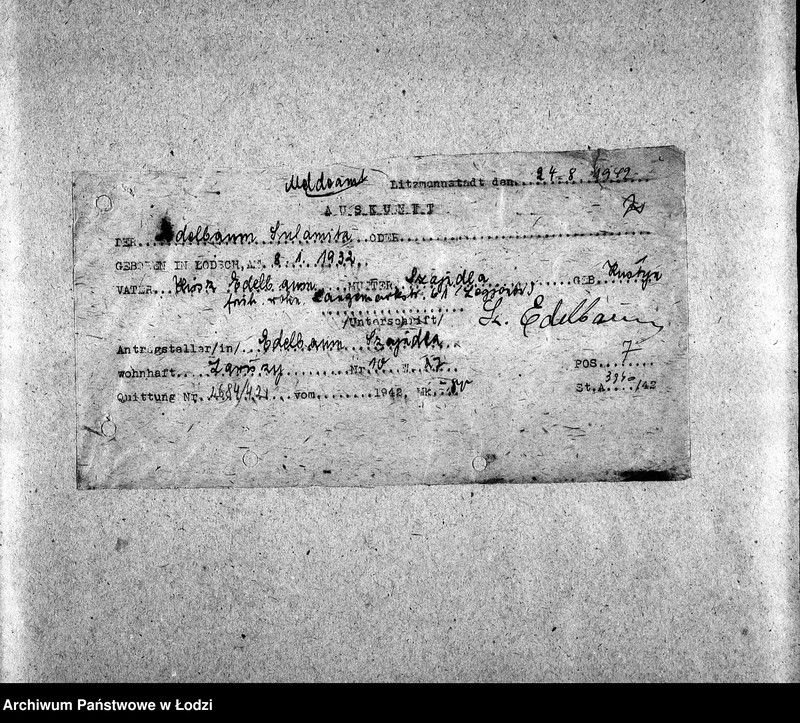 Meldeamt Litzmannstadt den 24.8.1942
AUSKUNFT
DER Edelbaum Sulamita ODER
GEBOREN IN LODSCH, AM 8.1.1932
VATER Edelbaum MUTTER Szajdla GEB.
früh. 61
/Unterschrift/ Sz. Edelbaum
Antragsteller/in/ Edelbaum Szajdla
wohnhaft Nr. 10 W. 17 POS. 7
Quittung Nr. 4684/42 vom 1942, Mk. St.A. 3940/42
Archiwum Państwowe w Łodzi